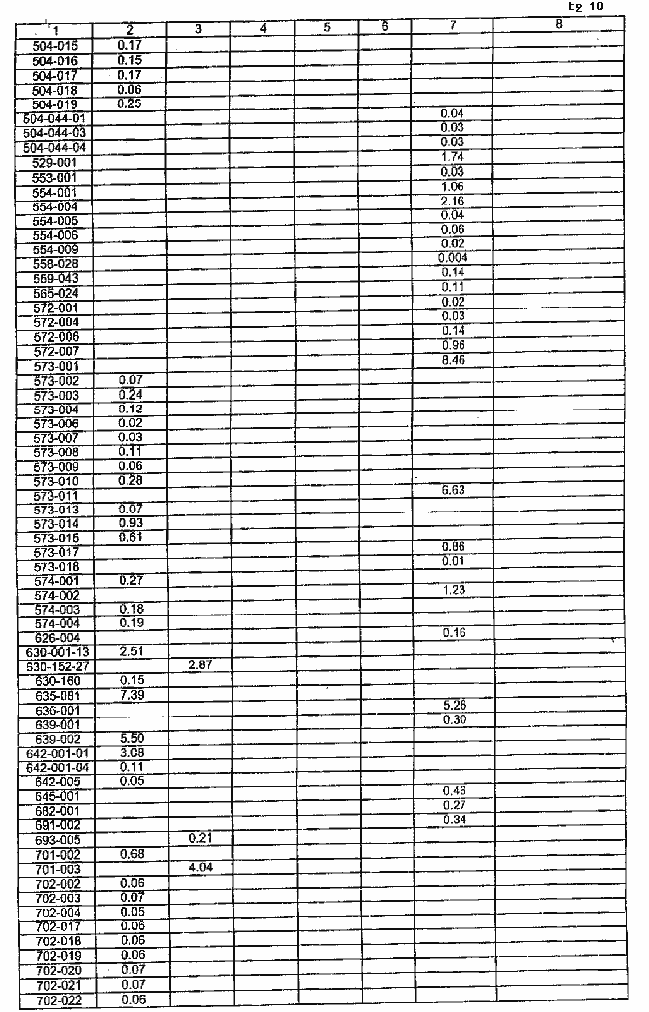 tg 10
1 2 3 4 5 6 7 8
504-015 0.17
504-016 0.15
504-017 0.17
504-018 0.06
504-019 0.25
504-044-01 0.04
504-044-03 0.03
504-044-04 0.03
529-001 1.74
553-001 0.03
554-001 1.06
554-004 2.16
554-005 0.04
554-006 0.06
554-009 0.02
558-028 0.004
559-043 0.14
565-024 0.11
572-001 0.02
572-004 0.03
572-006 0.14
572-007 0.96
573-001 8.46
573-002 0.07
573-003 0.24
573-004 0.12
573-006 0.02
573-007 0.03
573-008 0.11
573-009 0.06
573-010 0.28
573-011 6.63
573-013 0.07
573-014 0.93
573-015 0.61
573-017 0.86
573-018 0.01
574-001 0.27
574-002 1.23
574-003 0.18
574-004 0.19
626-004 0.16
630-001-13 2.51
630-152-27 2.87
630-160 0.15
635-061 7.39
636-001 5.26
639-001 0.30
639-002 5.50
642-001-01 3.08
642-001-04 0.11
642-005 0.05
645-001 0.46
682-001 0.27
691-002 0.34
693-005 0.21
701-002 0.68
701-003 4.04
702-002 0.06
702-003 0.07
702-004 0.05
702-017 0.06
702-018 0.06
702-019 0.06
702-020 0.07
702-021 0.07
702-022 0.06